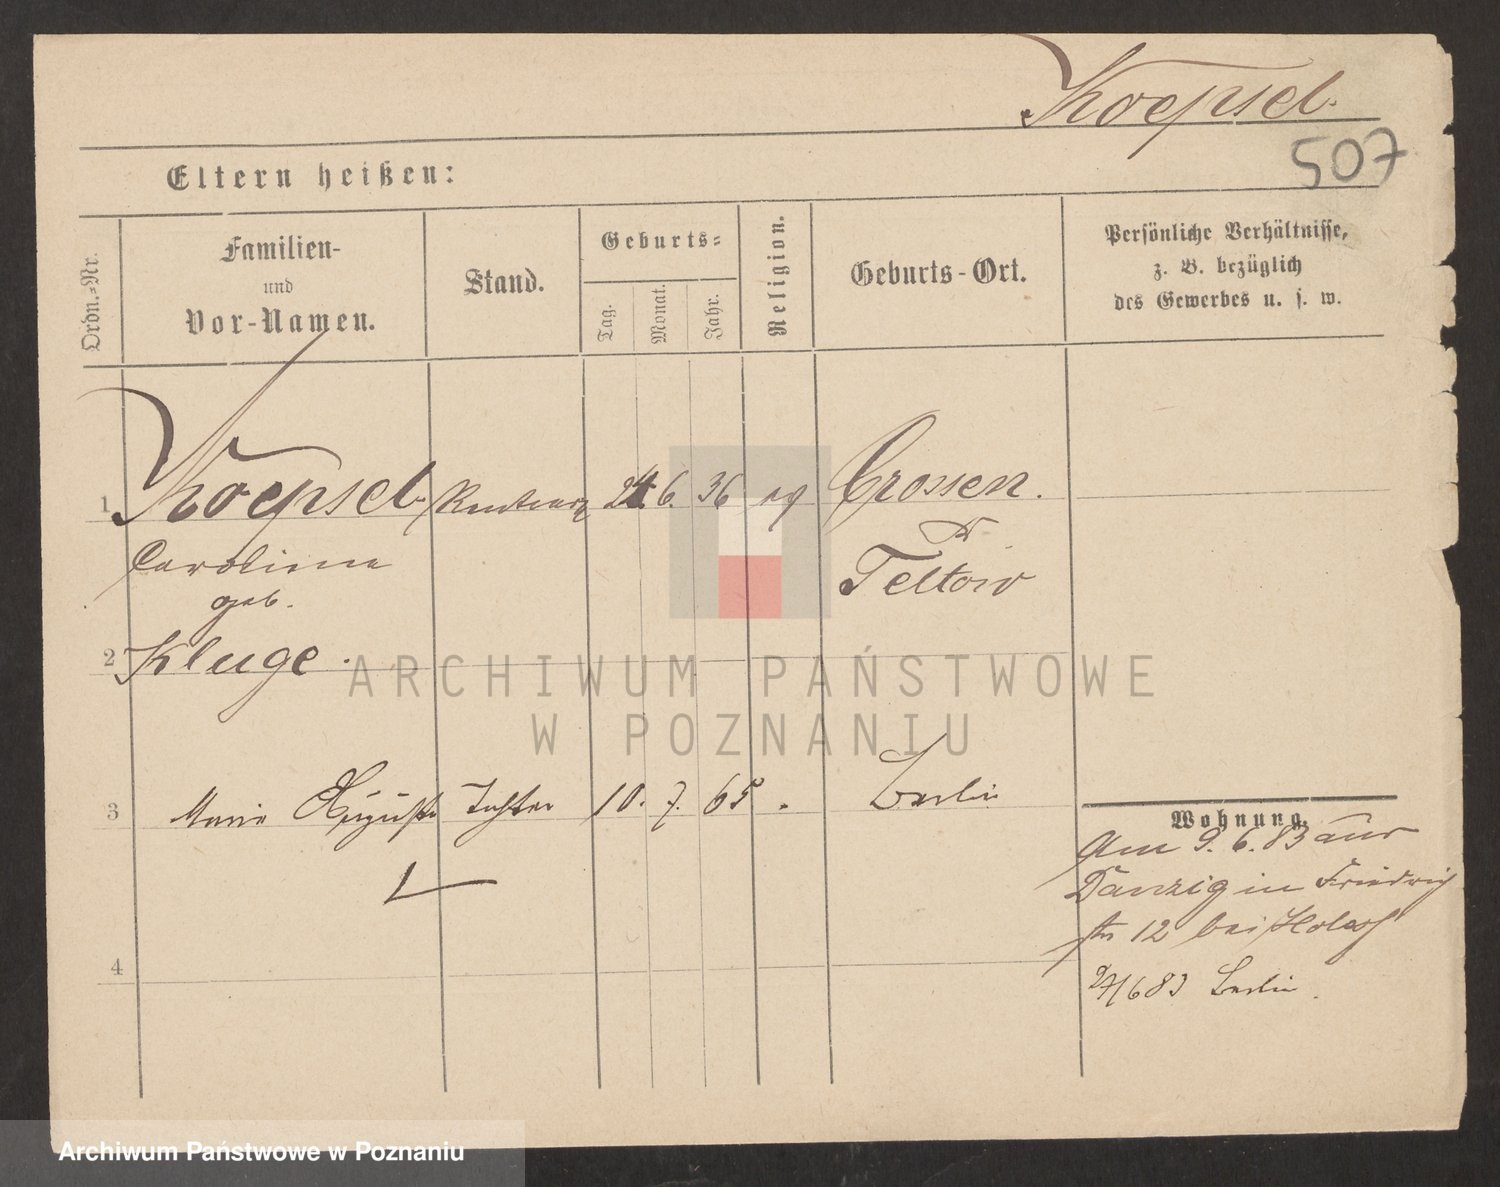 Koepsel.
507
Eltern heißen:
Ordn.=Nr.
Familien-
und
Vor-Namen.
Stand.
Geburts=
Tag.
Monat.
Jahr.
Religion.
Geburts-Ort.
Persönliche Verhältnisse,
z. B. bezüglich
des Gewerbes u. s. w.
1 Koepsel. 24. 6. 36 ev Crossen.
Caroline
geb.
Teltow
2 Kluge.
ARCHIWUM PAŃSTWOWE
W POZNANIU
3 Marie Auguste Tochter 10. 7. 65. Berlin
4
Wohnung.
Am 9. 6. 83 aus
Danzig in Friedrich
str 12 bei
24/6 83 Berlin.
Archiwum Państwowe w Poznaniu